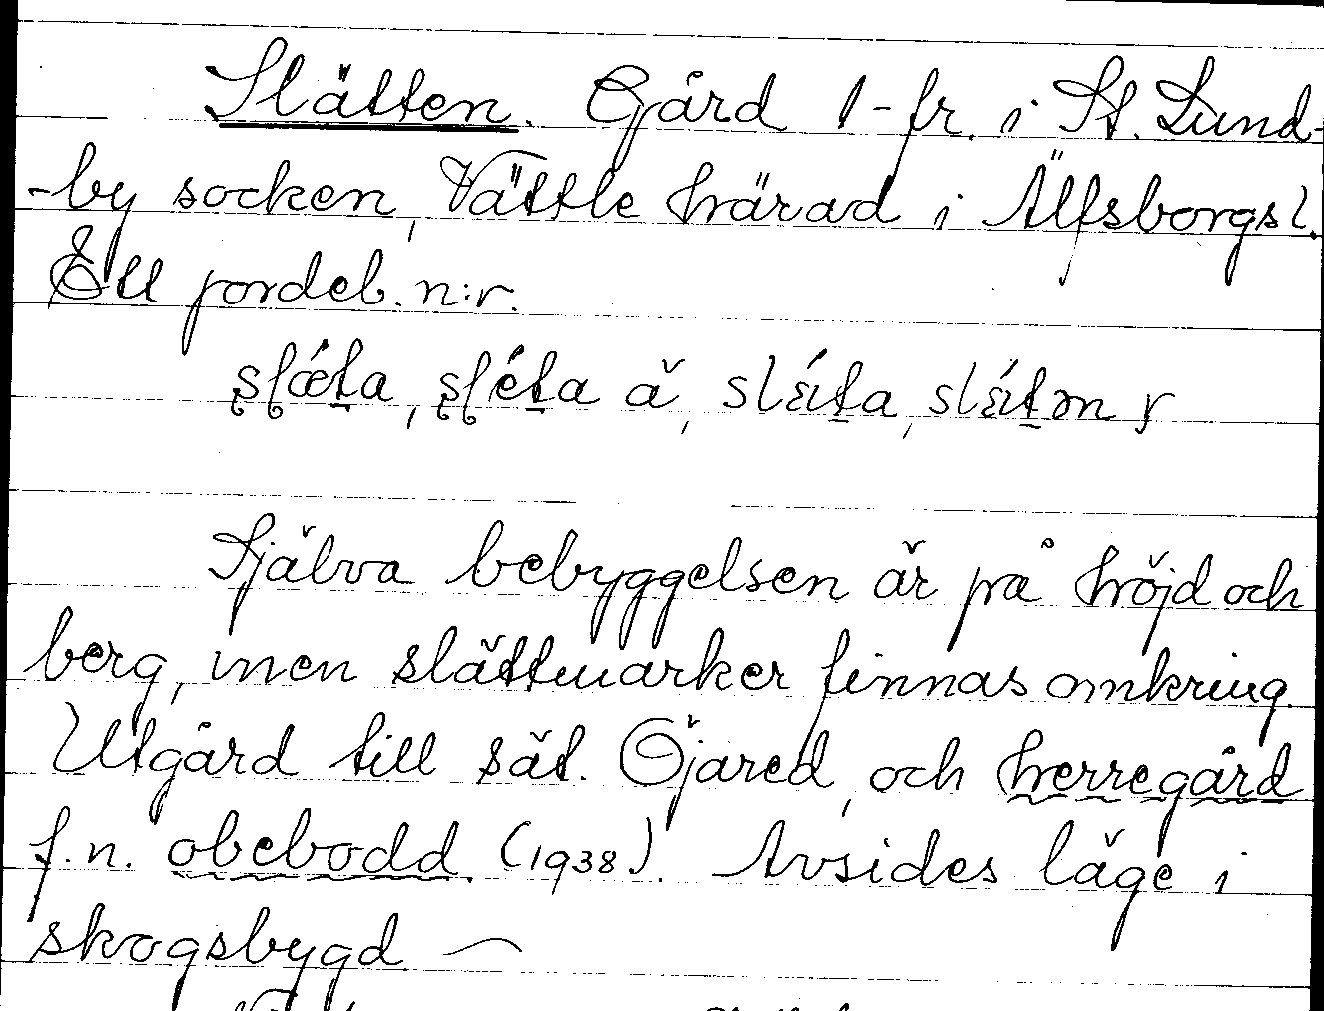 Slätten. Gård 1-fr. i St. Lund-
-by socken, Vättle härad i Älfsborgs l.
Ett jordeb. n:r.
Själva bebyggelsen är på höjd och
berg, men slättmarker finnas omkring.
Utgård till sät. Öjared, och herregård
f.n. obebodd. (1938). Avsides läge i
skogsbygd